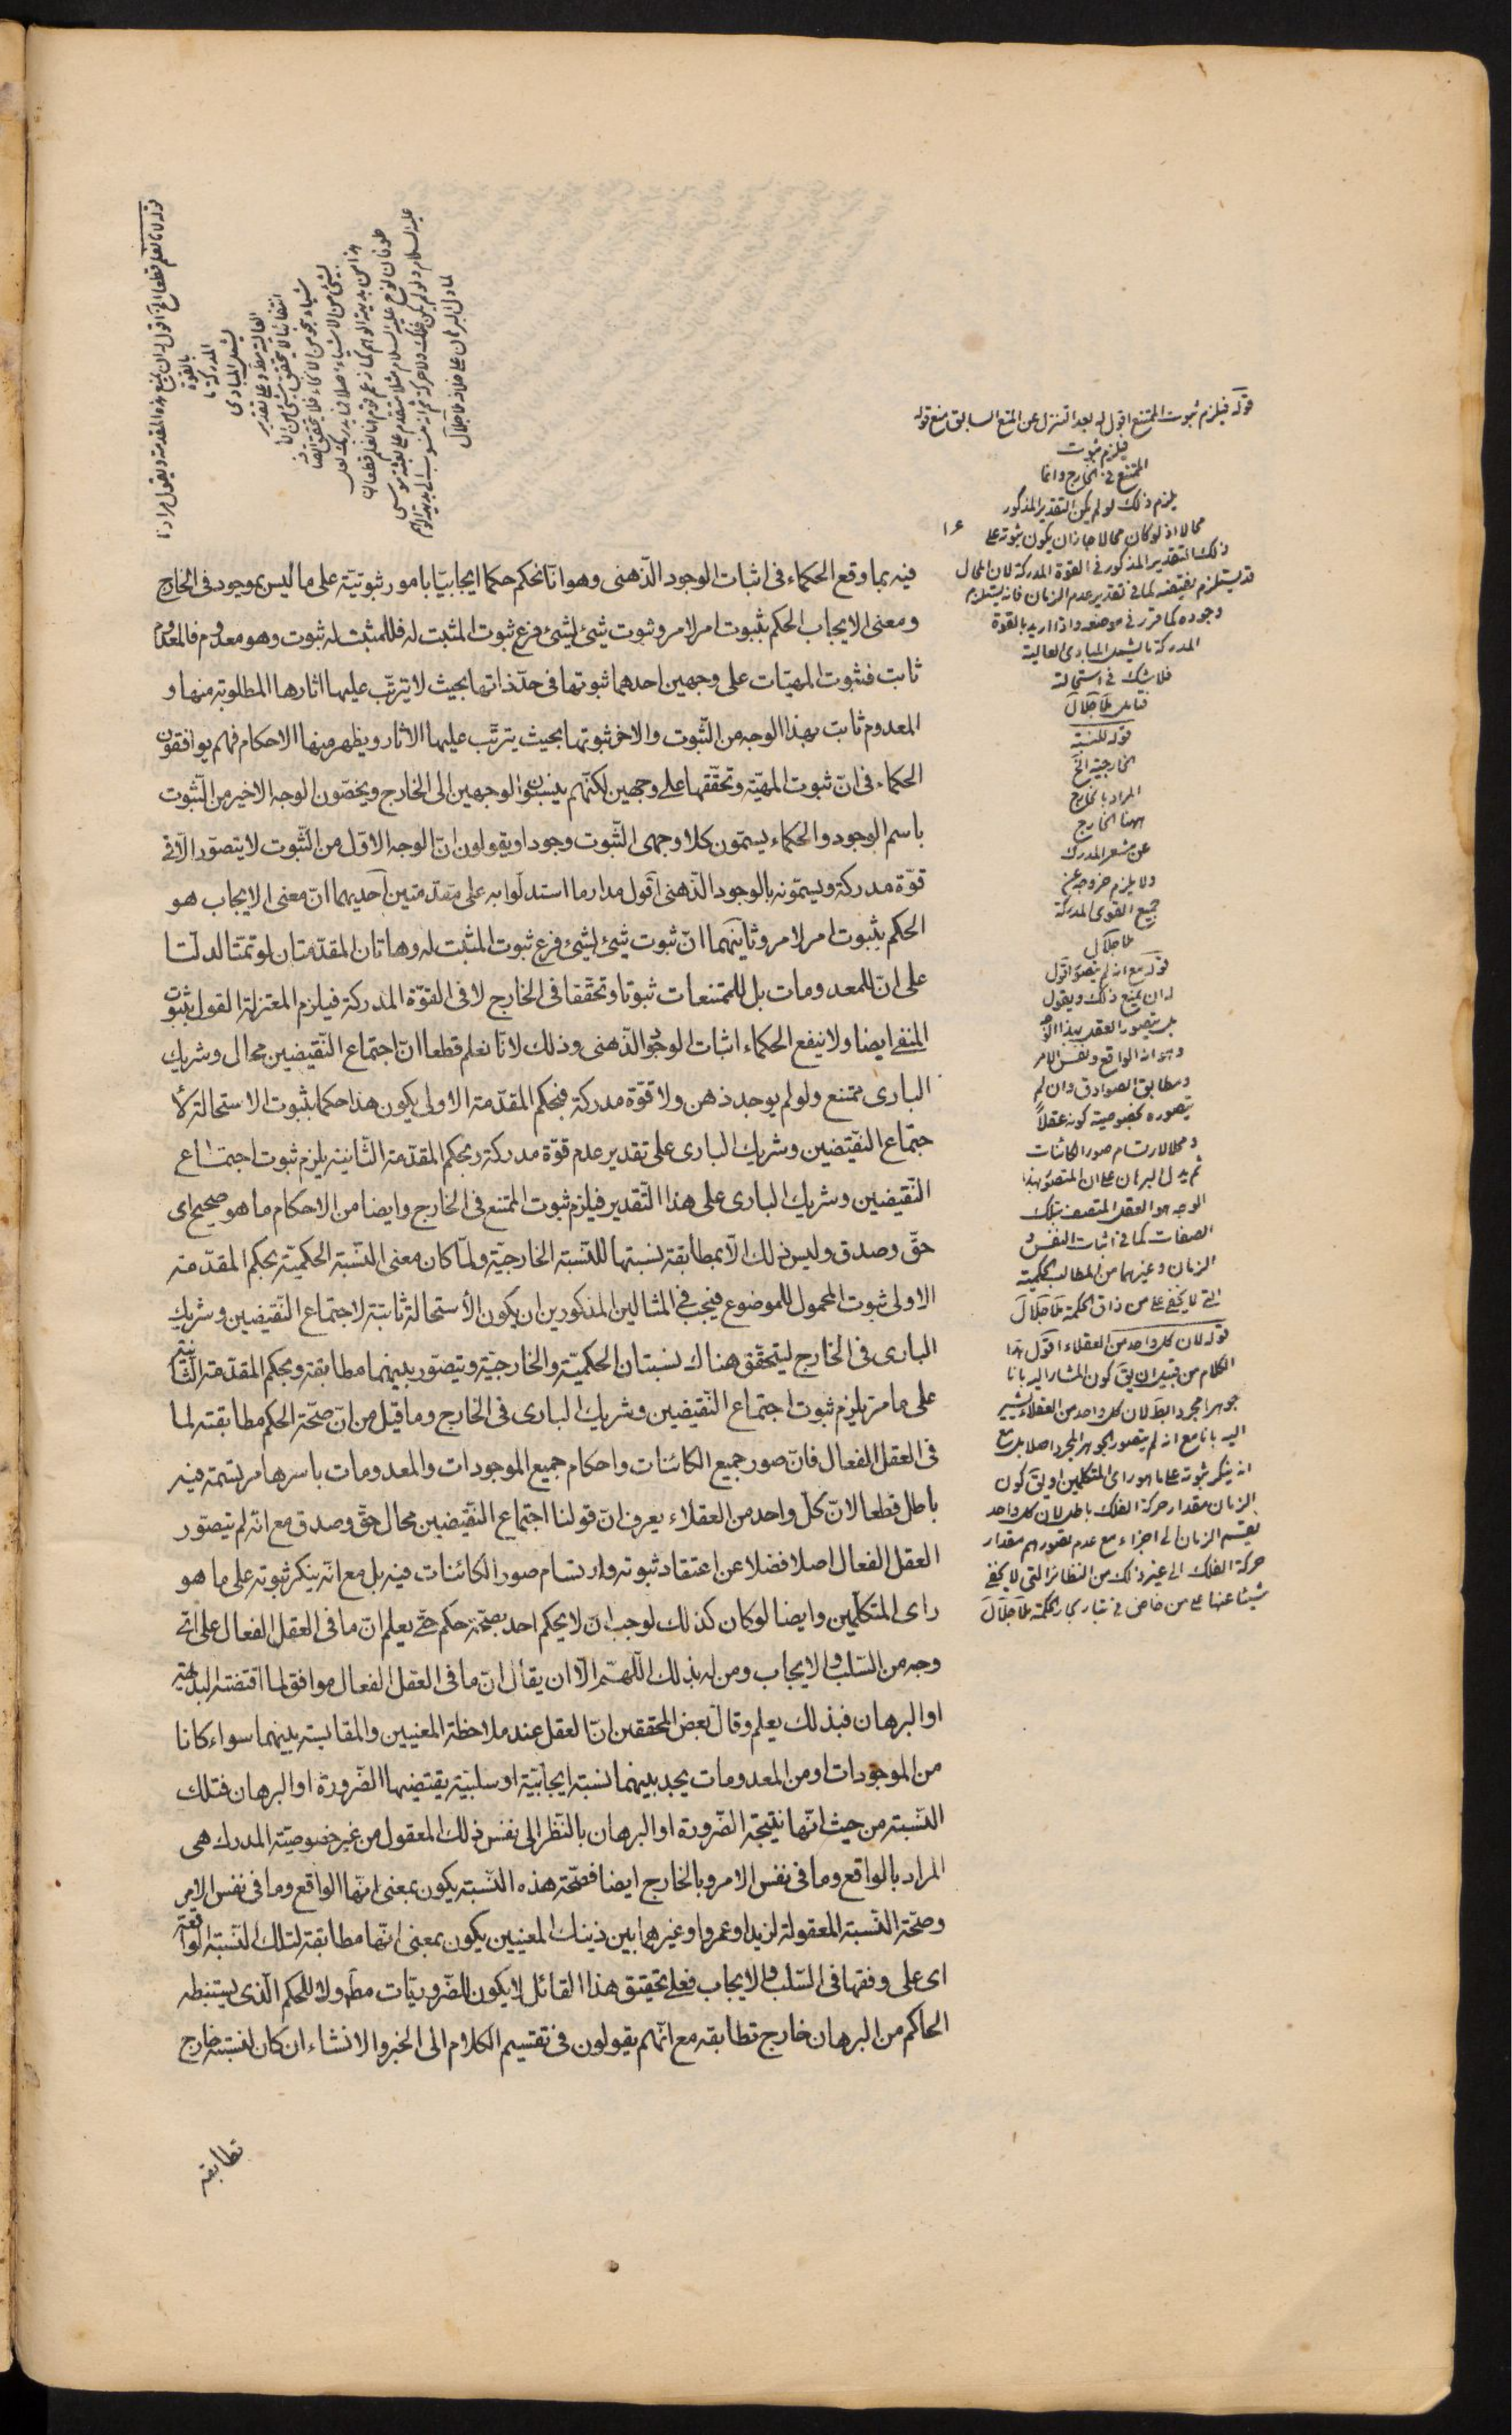 فيه بما وقع الحكماء فى اثبات الوجود الذّهنى وهو انّا نحكم حكما ايجابيّا بامور ثبوتيّة على ما ليس بموجود فى الخارج
ومعنى الايجاب الحكم بثبوت امر لامر وثبوت شئ لشئ فرع ثبوت المثبت له فللمثبت له ثبوت وهو معدوم فالمعدوم
ثابت فثبوت المهيّات على وجهين احدهما ثبوتها فى حدّ ذاتها بحيث لا يترتّب عليها اثارها المطلوبة منها و
المعدوم ثابت بهذا الوجه من الثّبوت والاخر ثبوتها بحيث يترتّب عليها الاثار ويظهر منها الاحكام فهم يوافقون
الحكماء فى انّ ثبوت المهيّة وتحقّقها على وجهين لكنّهم ينسبون الوجهين الى الخارج ويخصّون الوجه الاخير من الثّبوت
باسم الوجود والحكماء يسمّون كلا وجهى الثّبوت وجودا ويقولون انّ الوجه الاوّل من الثّبوت لا يتصوّر الّا فى
قوّة مدركة ويسمّونه بالوجود الذّهنى اقول مدار ما استدلّوا به على مقدّمتين احديهما انّ معنى الايجاب هو
الحكم بثبوت امر لامر وثانيتهما انّ ثبوت شئ لشئ فرع ثبوت المثبت له وهاتان المقدّمتان لو تمّتا لدلّتا
على انّ للمعدومات بل للممتنعات ثبوتا وتحقّقا فى الخارج لا فى القوّة المدركة فيلزم المعتزلة القول بثبوت
المنفى ايضا ولا ينفع الحكماء اثبات الوجود الذّهنى وذلك لانّا نعلم قطعا انّ اجتماع النّقيضين محال وشريك
البارى ممتنع ولو لم يوجد ذهن ولا قوّة مدركة فبحكم المقدّمة الاولى يكون هذا حكما بثبوت الاستحالة لا
جتماع النّقيضين وشريك البارى على تقدير عدم قوّة مدركة وبحكم المقدّمة الثّانية يلزم ثبوت اجتماع
النّقيضين وشريك البارى على هذا التّقدير فيلزم ثبوت الممتنع فى الخارج وايضا من الاحكام ما هو صحيح اى
حقّ وصدق وليس ذلك الّا بمطابقة نسبتها للنّسبة الخارجيّة ولمّا كان معنى النّسبة الحكميّة بحكم المقدّمة
الاولى ثبوت المحمول للموضوع فيجب فى المثالين المذكورين ان يكون الاستحالة ثابتة لاجتماع النّقيضين وشريك
البارى فى الخارج ليتحقّق هناك نسبتان الحكميّة والخارجيّة ويتصوّر بينهما مطابقة وبحكم المقدّمة الثّانية
على ما مرّ يلزم ثبوت اجتماع النّقيضين وشريك البارى فى الخارج وما قيل من انّ صحّة الحكم مطابقته لما
فى العقل الفعال فانّ صور جميع الكائنات واحكام جميع الموجودات والمعدومات باسرها مرتسمة فيه
باطل قطعا لانّ كلّ واحد من العقلاء يعرف انّ قولنا اجتماع النّقيضين محال حقّ وصدق مع انّه لم يتصوّر
العقل الفعال اصلا فضلا عن اعتقاد ثبوته وارتسام صور الكائنات فيه بل مع انّه ينكر ثبوته على ما هو
راى المتكلّمين وايضا لو كان كذلك لوجب ان لا يحكم احد بصحّة حكم حتّى يعلم انّ ما فى العقل الفعال على اىّ
وجه من السّلب والايجاب ومن له بذلك اللّهمّ الّا ان يقال انّ ما فى العقل الفعال موافق لما اقتضته البديهة
او البرهان فبذلك يعلم وقال بعض المحققين انّ العقل عند ملاحظة المعنيين والمقايسة بينهما سواء كانا
من الموجودات او من المعدومات يجد بينهما نسبة ايجابيّة او سلبيّة يقتضيها الضّرورة او البرهان فتلك
النّسبة من حيث انّها نتيجة الضّرورة او البرهان بالنّظر الى نفس ذلك المعقول من غير خصوصيّة المدرك هى
المراد بالواقع وما فى نفس الامر وبالخارج ايضا فصحّة هذه النّسبة يكون بمعنى انّها الواقع وما فى نفس الامر
وصحّة النّسبة المعقولة لزيد او عمرو او غيرهما بين ذينك المعنيين يكون بمعنى انّها مطابقة لتلك النّسبة الواقعة
اى على وفقها فى السّلب والايجاب فعلى تحقيق هذا القائل لا يكون للضّروريّات مط ولا للحكم الّذى يستنبطه
الحاكم من البرهان خارج تطابقه مع انّهم يقولون فى تقسيم الكلام الى الخبر والانشاء ان كان لنسبته خارج
تطابقه
قوله فيلزم ثبوت الممتنع اقول له بعد التنزل عن المنع السابق منع قوله
فيلزم ثبوت
الممتنع فى الخارج وانما
يلزم ذلك لو لم يكن التقدير المذكور
محالا اذ لو كان محالا جاز ان يكون ثبوته على
ذلك التقدير المذكور فى القوة المدركة لان المحال
قد يستلزم نقيضه كما فى تقدير عدم الزمان فانه يستلزم
وجوده كما قرر فى موضعه واذا اريد بالقوة
المدركة ما يشمل المبادى العالية
فلا شك فى استحالة
قوله للنسبة
الخارجية الخ
المراد بالخارج
ههنا الخارج
عن مشعر المدرك
ولا يلزم خروجه عن
جميع القوى المدركة
ملا جلال
قوله مع انه لم يتصور اقول
له ان يمنع ذلك ويقول
بل يتصور العقل بهذا الوجه
وهو انه الواقع ونفس الامر
ومطابق الصوادق وان لم
يتصوره بخصوصية كونه عقلا
ومحلا لارتسام صور الكائنات
ثم يدل البرهان على ان المتصور بهذا
الوجه هو العقل المتصف بتلك
الصفات كما فى اثبات النفس و
الزمان وغيرهما من المطالب الحكمية
التى لا يخفى على من ذاق الحكمة ملا جلال
قوله لان كل واحد من العقلاء اقول هذا
الكلام من قبيل ان يق كون المشار اليه بانا
جوهرا مجردا بط لان كل واحد من العقلاء يشير
اليه بانا مع انه لم يتصور الجوهر المجرد اصلا بل مع
انه ينكر ثبوته على ما هو راى المتكلمين او يق كون
الزمان مقدار حركة الفلك باطل لان كل واحد
يقسم الزمان الى اجزاء مع عدم تصورهم مقدار
حركة الفلك الى غير ذلك من النظائر التى لا يخفى
شيئا عنها على من خاض فى تيار بحار الحكمة ملا جلال
قوله لانا نعلم قطعا الخ اقول له ان يمنع هذه المقدمة ويقول مرادنا
بالقوة
المدركة ما
يشمل المبادى